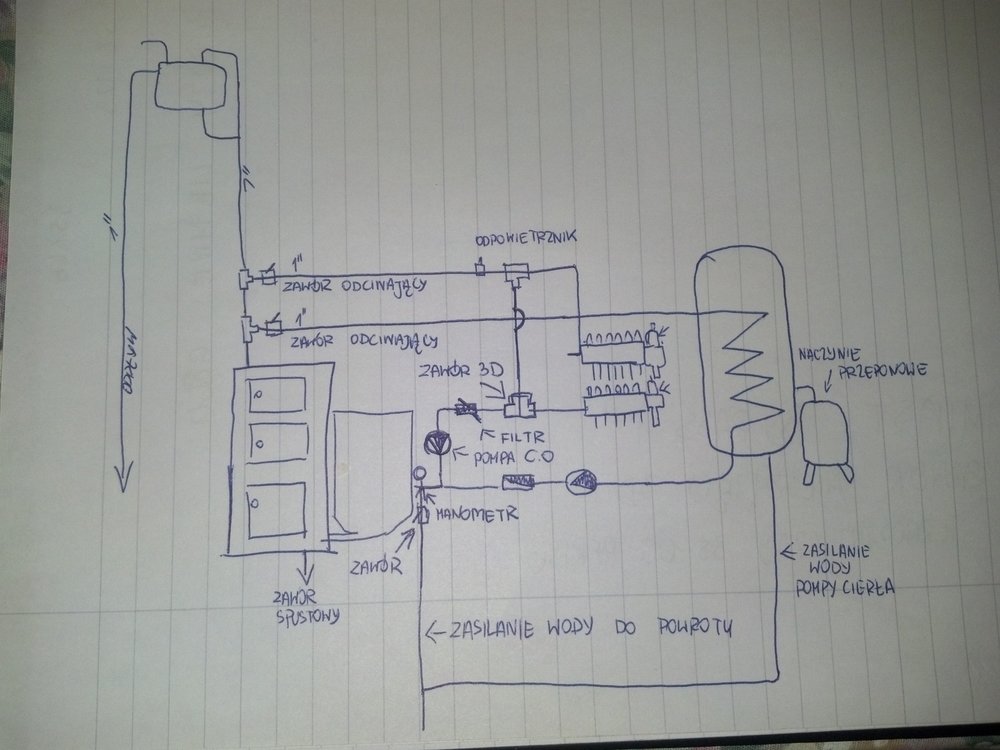 ODPOWIETRZNIK
1"
1"
1"
ZAWÓR ODCINAJĄCY
1"
ZAWÓR ODCINAJĄCY
ZAWÓR 3D
NACZYNIE
PRZEPONOWE
FILTR
POMPA C.O
MANOMETR
ZAWÓR
ZAWÓR
SPUSTOWY
ZASILANIE
WODY
POMPY CIEPŁA
ZASILANIE WODY DO POWROTU